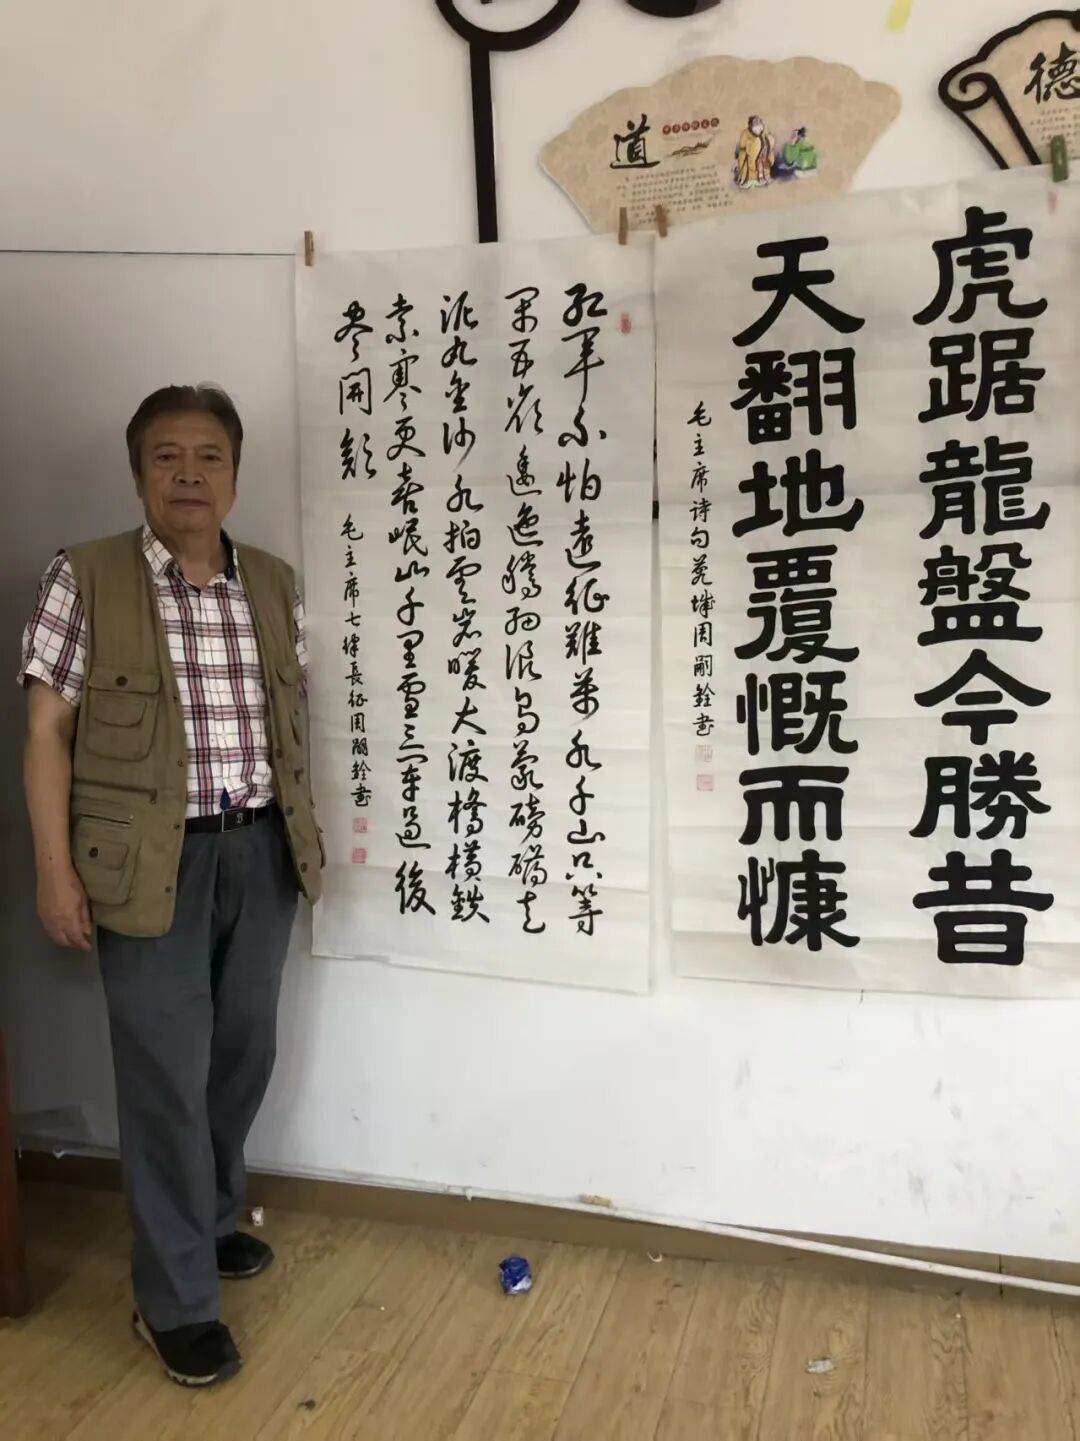 道
德
虎踞龍盤今勝昔
天翻地覆慨而慷
毛主席诗句菀城周嗣銓书
红军不怕遠征難萬水千山只等
闲五岭逶迤騰细浪烏蒙磅礴走
泥丸金沙水拍雲岩暖大渡橋横鉄
索寒更喜岷山千里雪三军過後
尽開颜
毛主席七律長征周嗣銓書